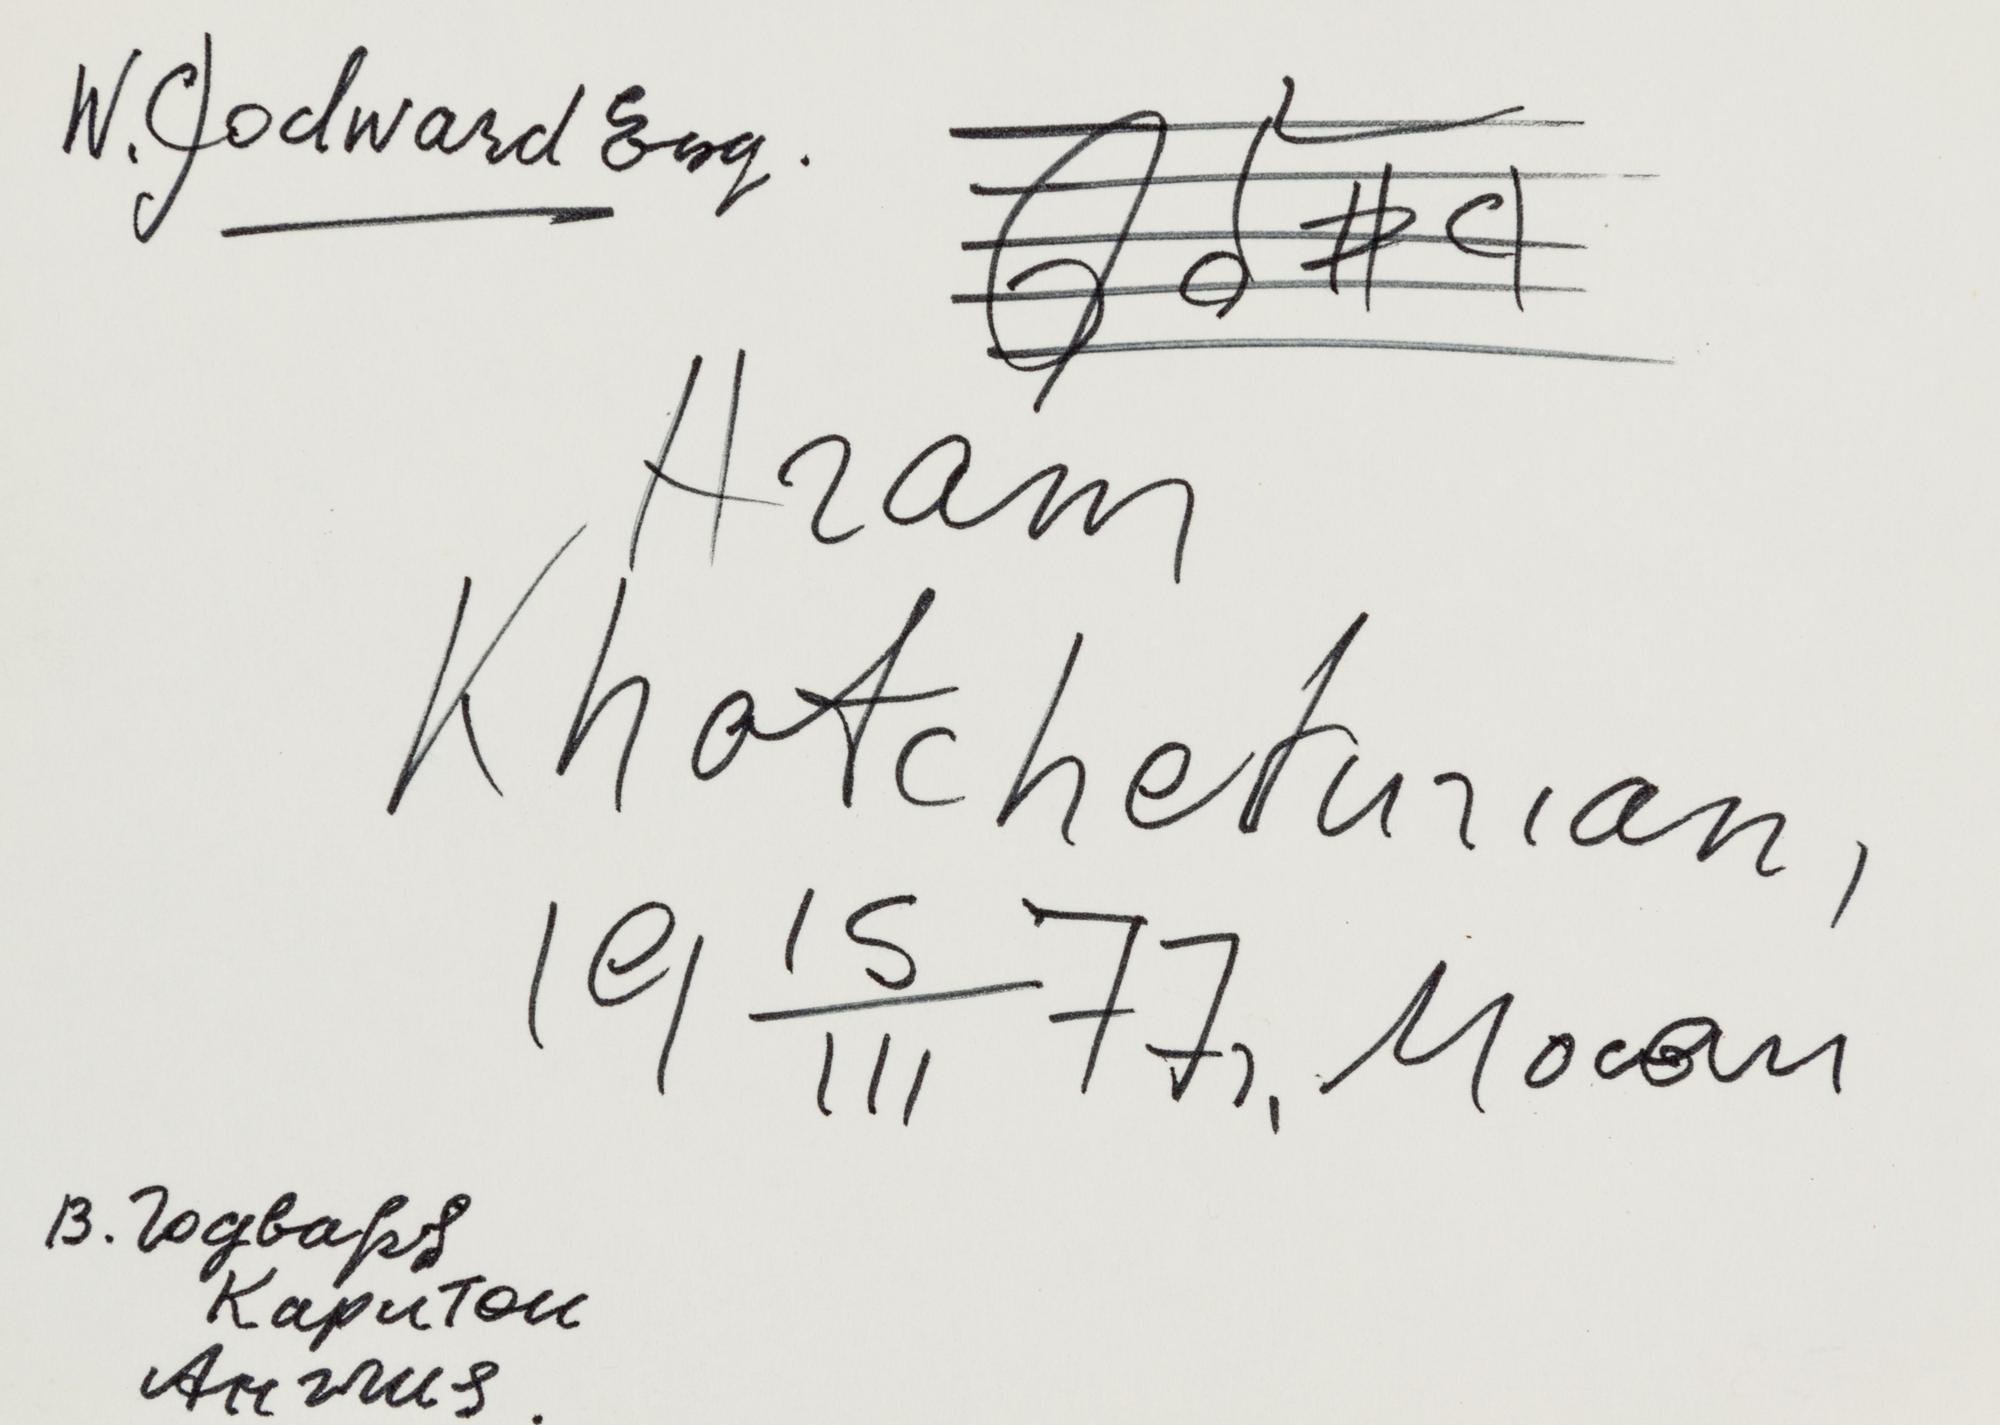 W. Godward Esq.
Aram
Khatcheturian,
19 15/III 77,
В. Годвард
Каритон
Англия.